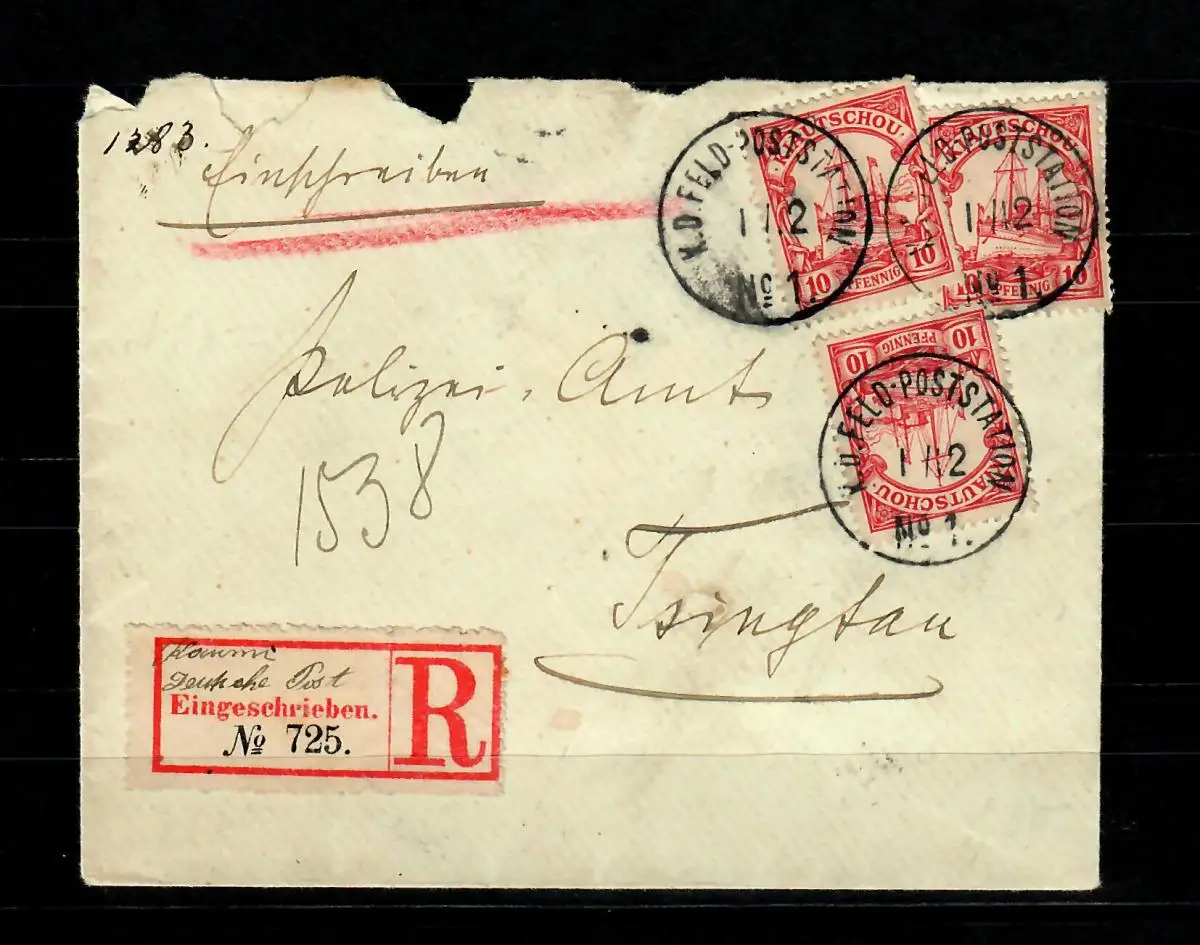 1283.
Einschreiben
KIAUTSCHOU
10 PFENNIG 10
K.D.FELD-POSTSTATION
1 / 12
No 1.
KIAUTSCHOU
10 PFENNIG 10
K.D.FELD-POSTSTATION
1 / 12
No 1.
10 PFENNIG 10
KIAUTSCHOU
K.D.FELD-POSTSTATION
1 / 12
No 1.
Polizei-Amt
1538
Tsingtau
Kaumi
Deutsche Post
Eingeschrieben.
No 725.
R